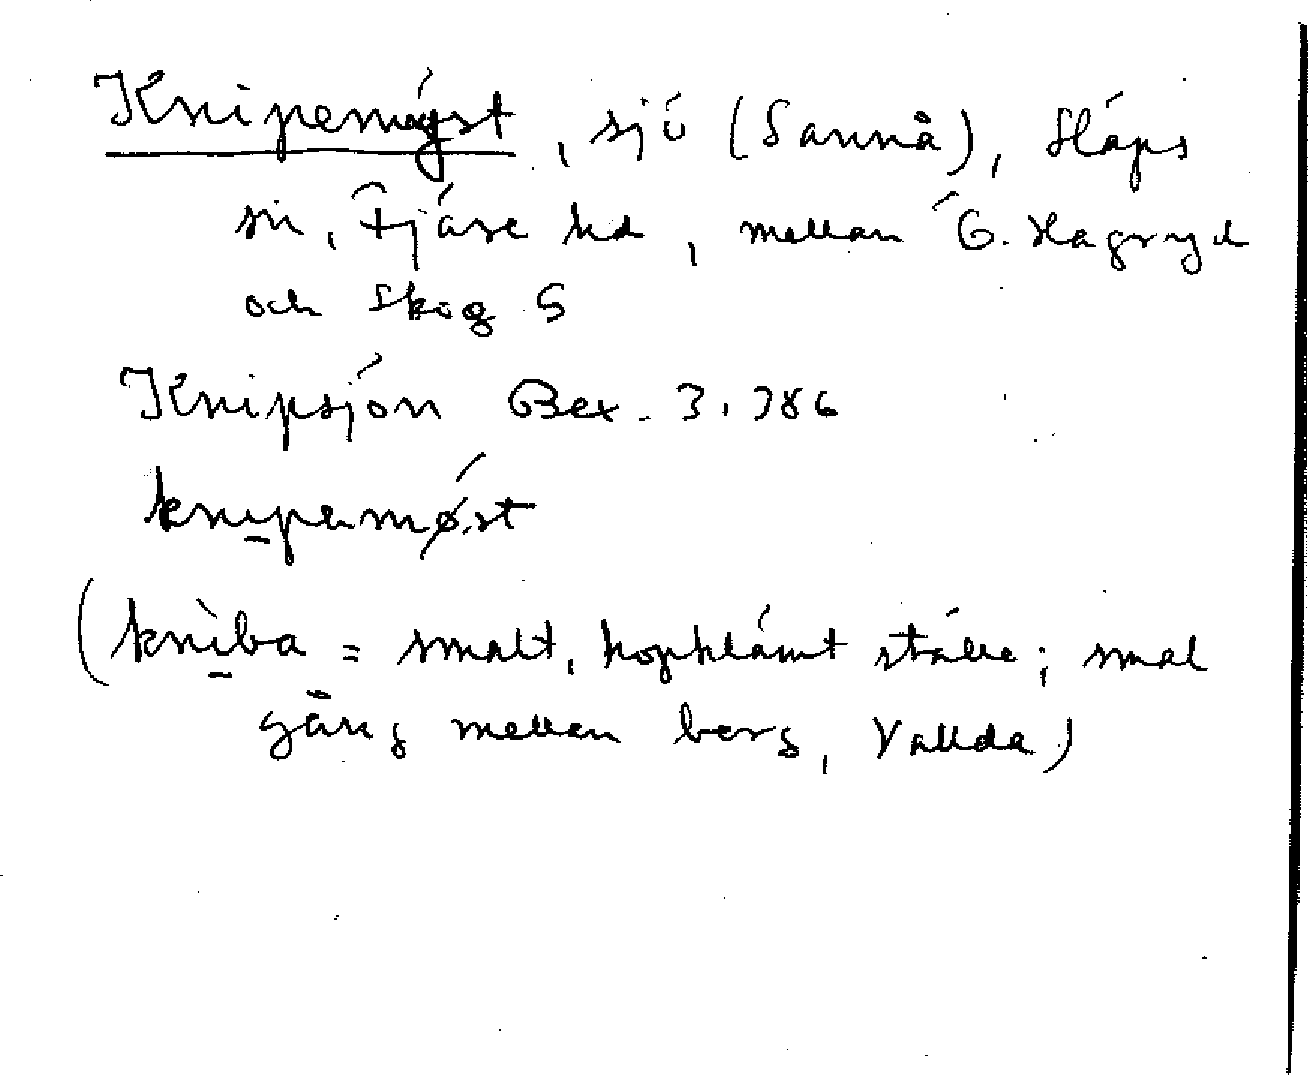 Knipemyst, sjö (Sannå), Släps
sn, Fjäre hd, mellan Ö. Hagryd
och Skog S
Knipsjön Bex. 3.786
knipemø.st
(kniba = smalt, hopklämt ställe; smal
gång mellan berg, Vallda)